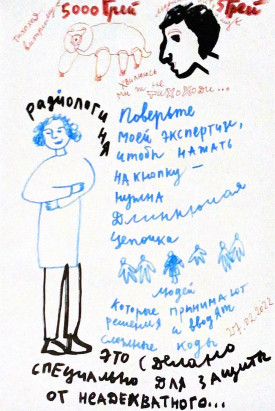 5000 Грей
5 Грей
РАДІОЛОГИНЯ
Поверьте
моей экспертизе,
чтобы нажать
на кнопку —
нужна
Длиннющая
цепочка
людей
которые принимают
решения и вводят
сложные коды
27.02.2022
ЭТО СДЕЛАНО
СПЕЦИАЛЬНО ДЛЯ ЗАЩИТЫ
ОТ НЕАДЕКВАТНОГО...